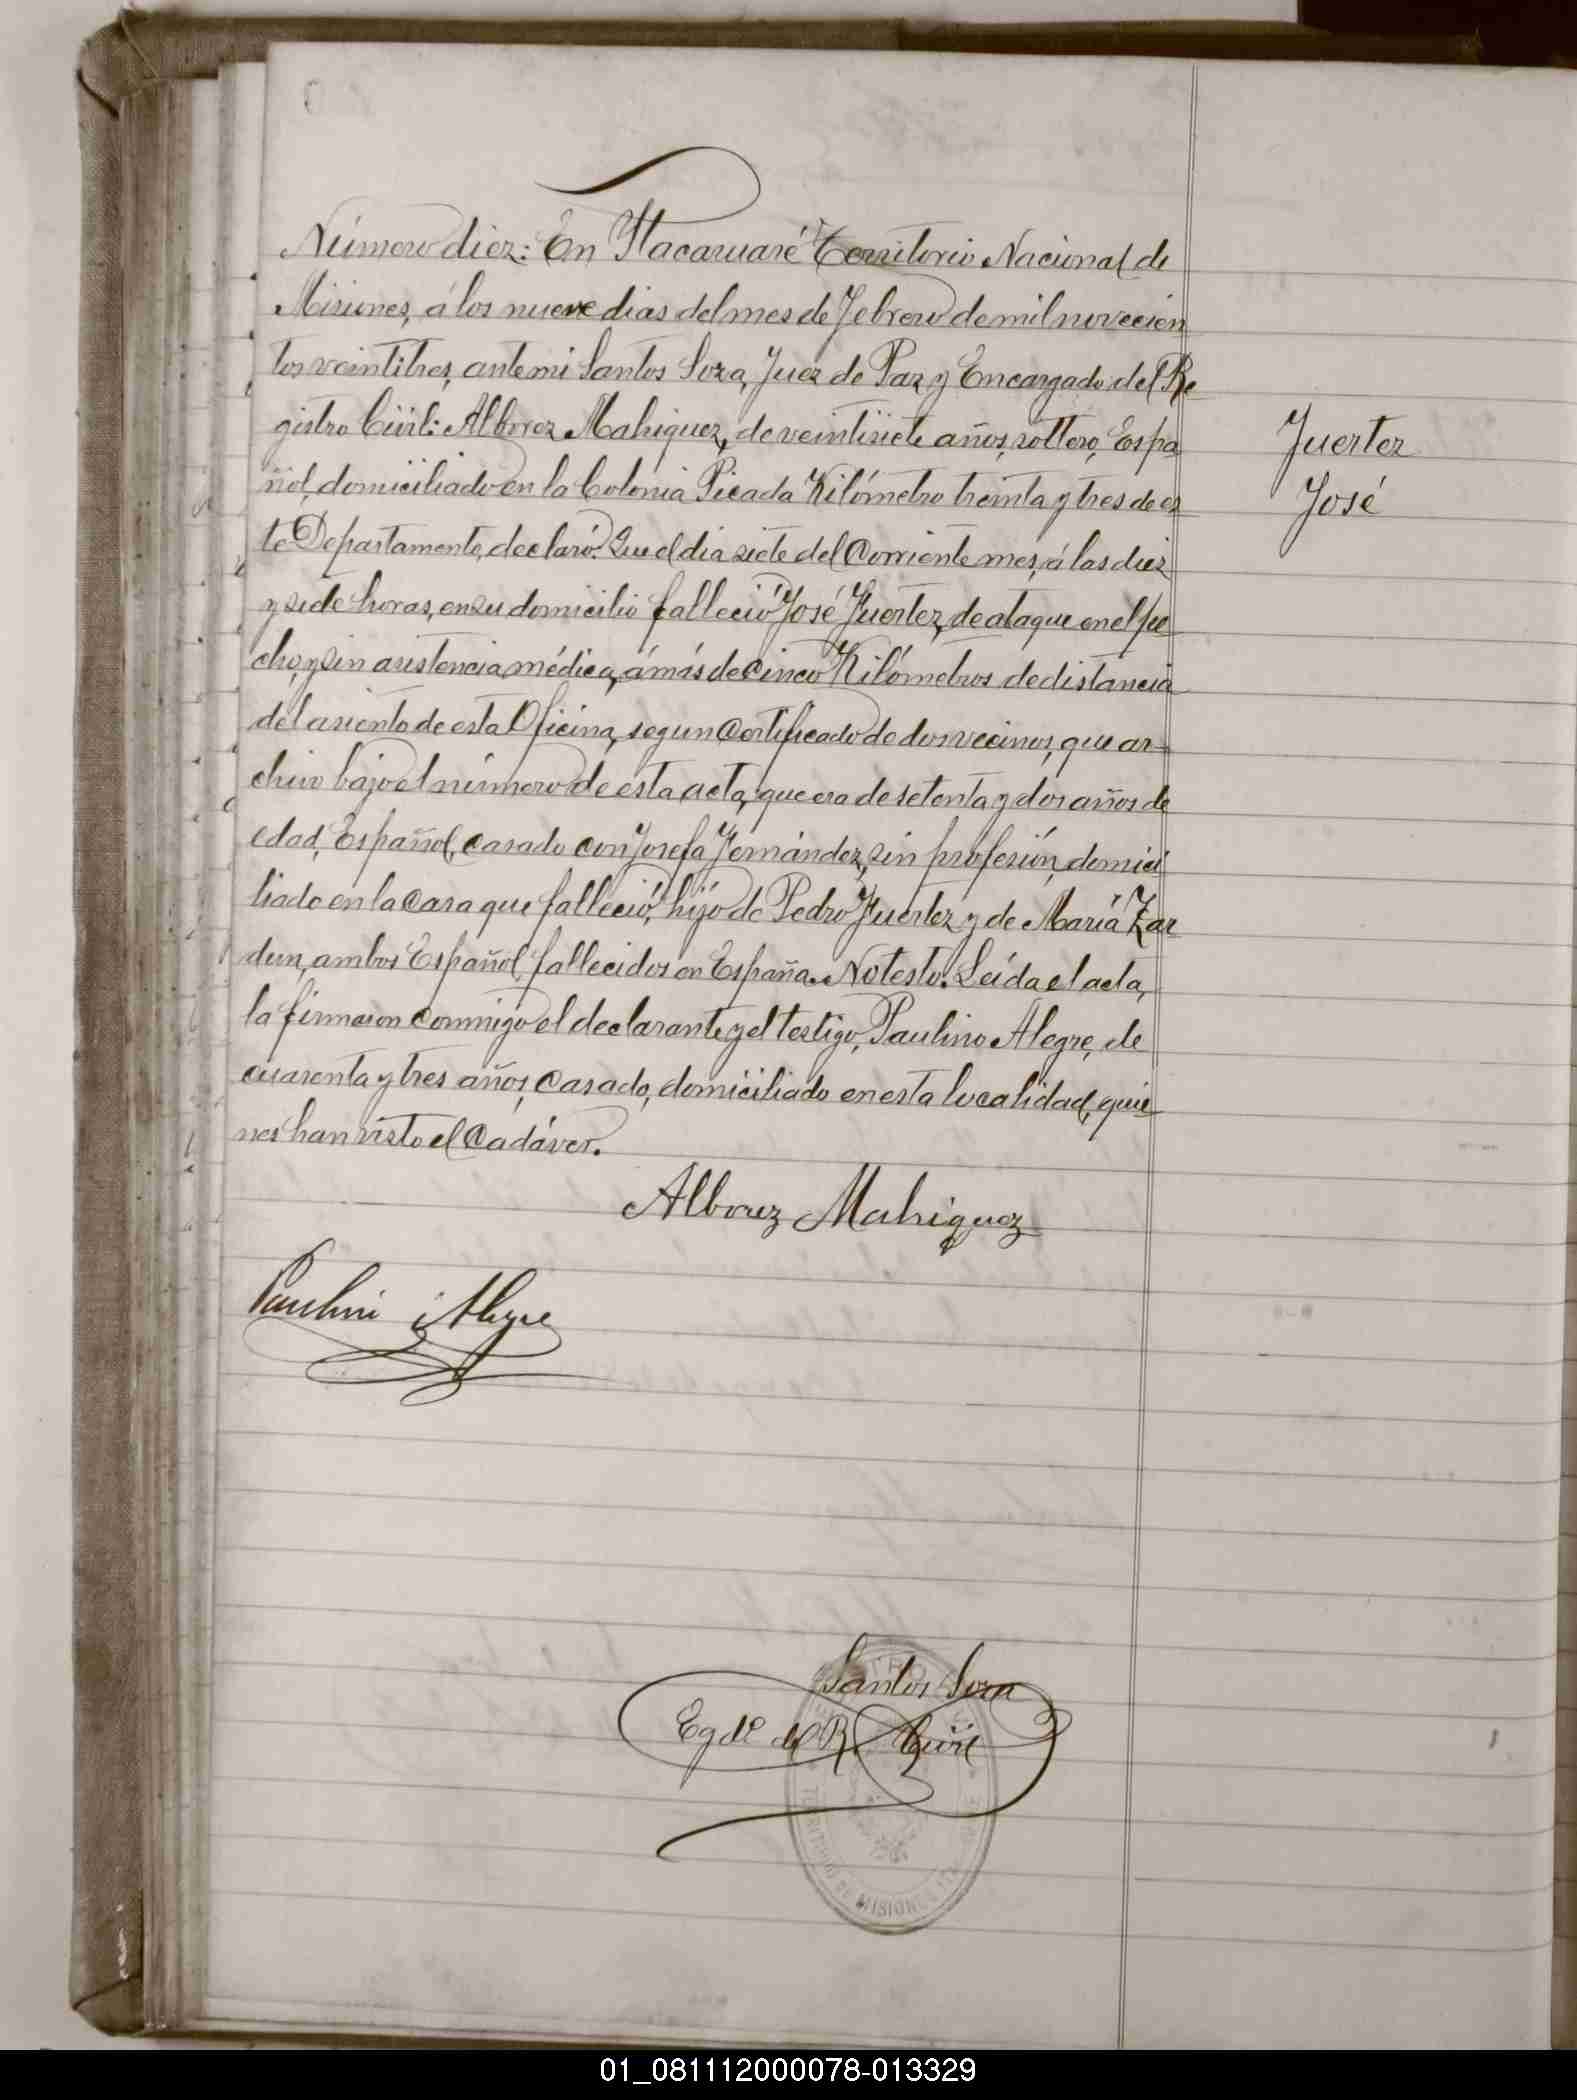 Número diez: En Itacaruaré Territorio Nacional de
Misiones, á los nueve dias del mes de Febrero de mil novecien
tos veintitres, ante mi Santos Soza, Juez de Paz y Encargado del Re
gistro Civil: Alborez Mahiquez, de veintisiete años, soltero, Espa
ñol, domiciliado en la Colonia Picada Kilómetro treinta y tres de es
te Departamento, declaró: Que el dia siete del Corriente mes, á las diez
y siete horas, en su domicilio falleció José Fuertez, de ataque en el pe
cho, y sin asistencia médica, á más de Cinco Kilómetros de distancia
del asiento de esta Oficina, segun Certificado de dos vecinos, que ar-
chivo bajo el número de esta acta, que era de setenta y dos años de
edad, Español, casado con Josefa Fernández, sin profesión, domici
liado en la Casa que falleció, hijo de Pedro Fuertez y de María Zar
dun, ambos Español, fallecidos en España. No testo. Leída el acta,
la firmaron Conmigo el declarante y el testigo, Paulino Alegre, de
cuarenta y tres años, Casado, domiciliado en esta localidad, quie
nes han visto el Cadáver.
Fuertez
José
Alborez Mahiquez
Paulino Alegre
Santos Soza
Egdo del R. Civil
TERRITORIO DE MISIONES
01_081112000078-013329